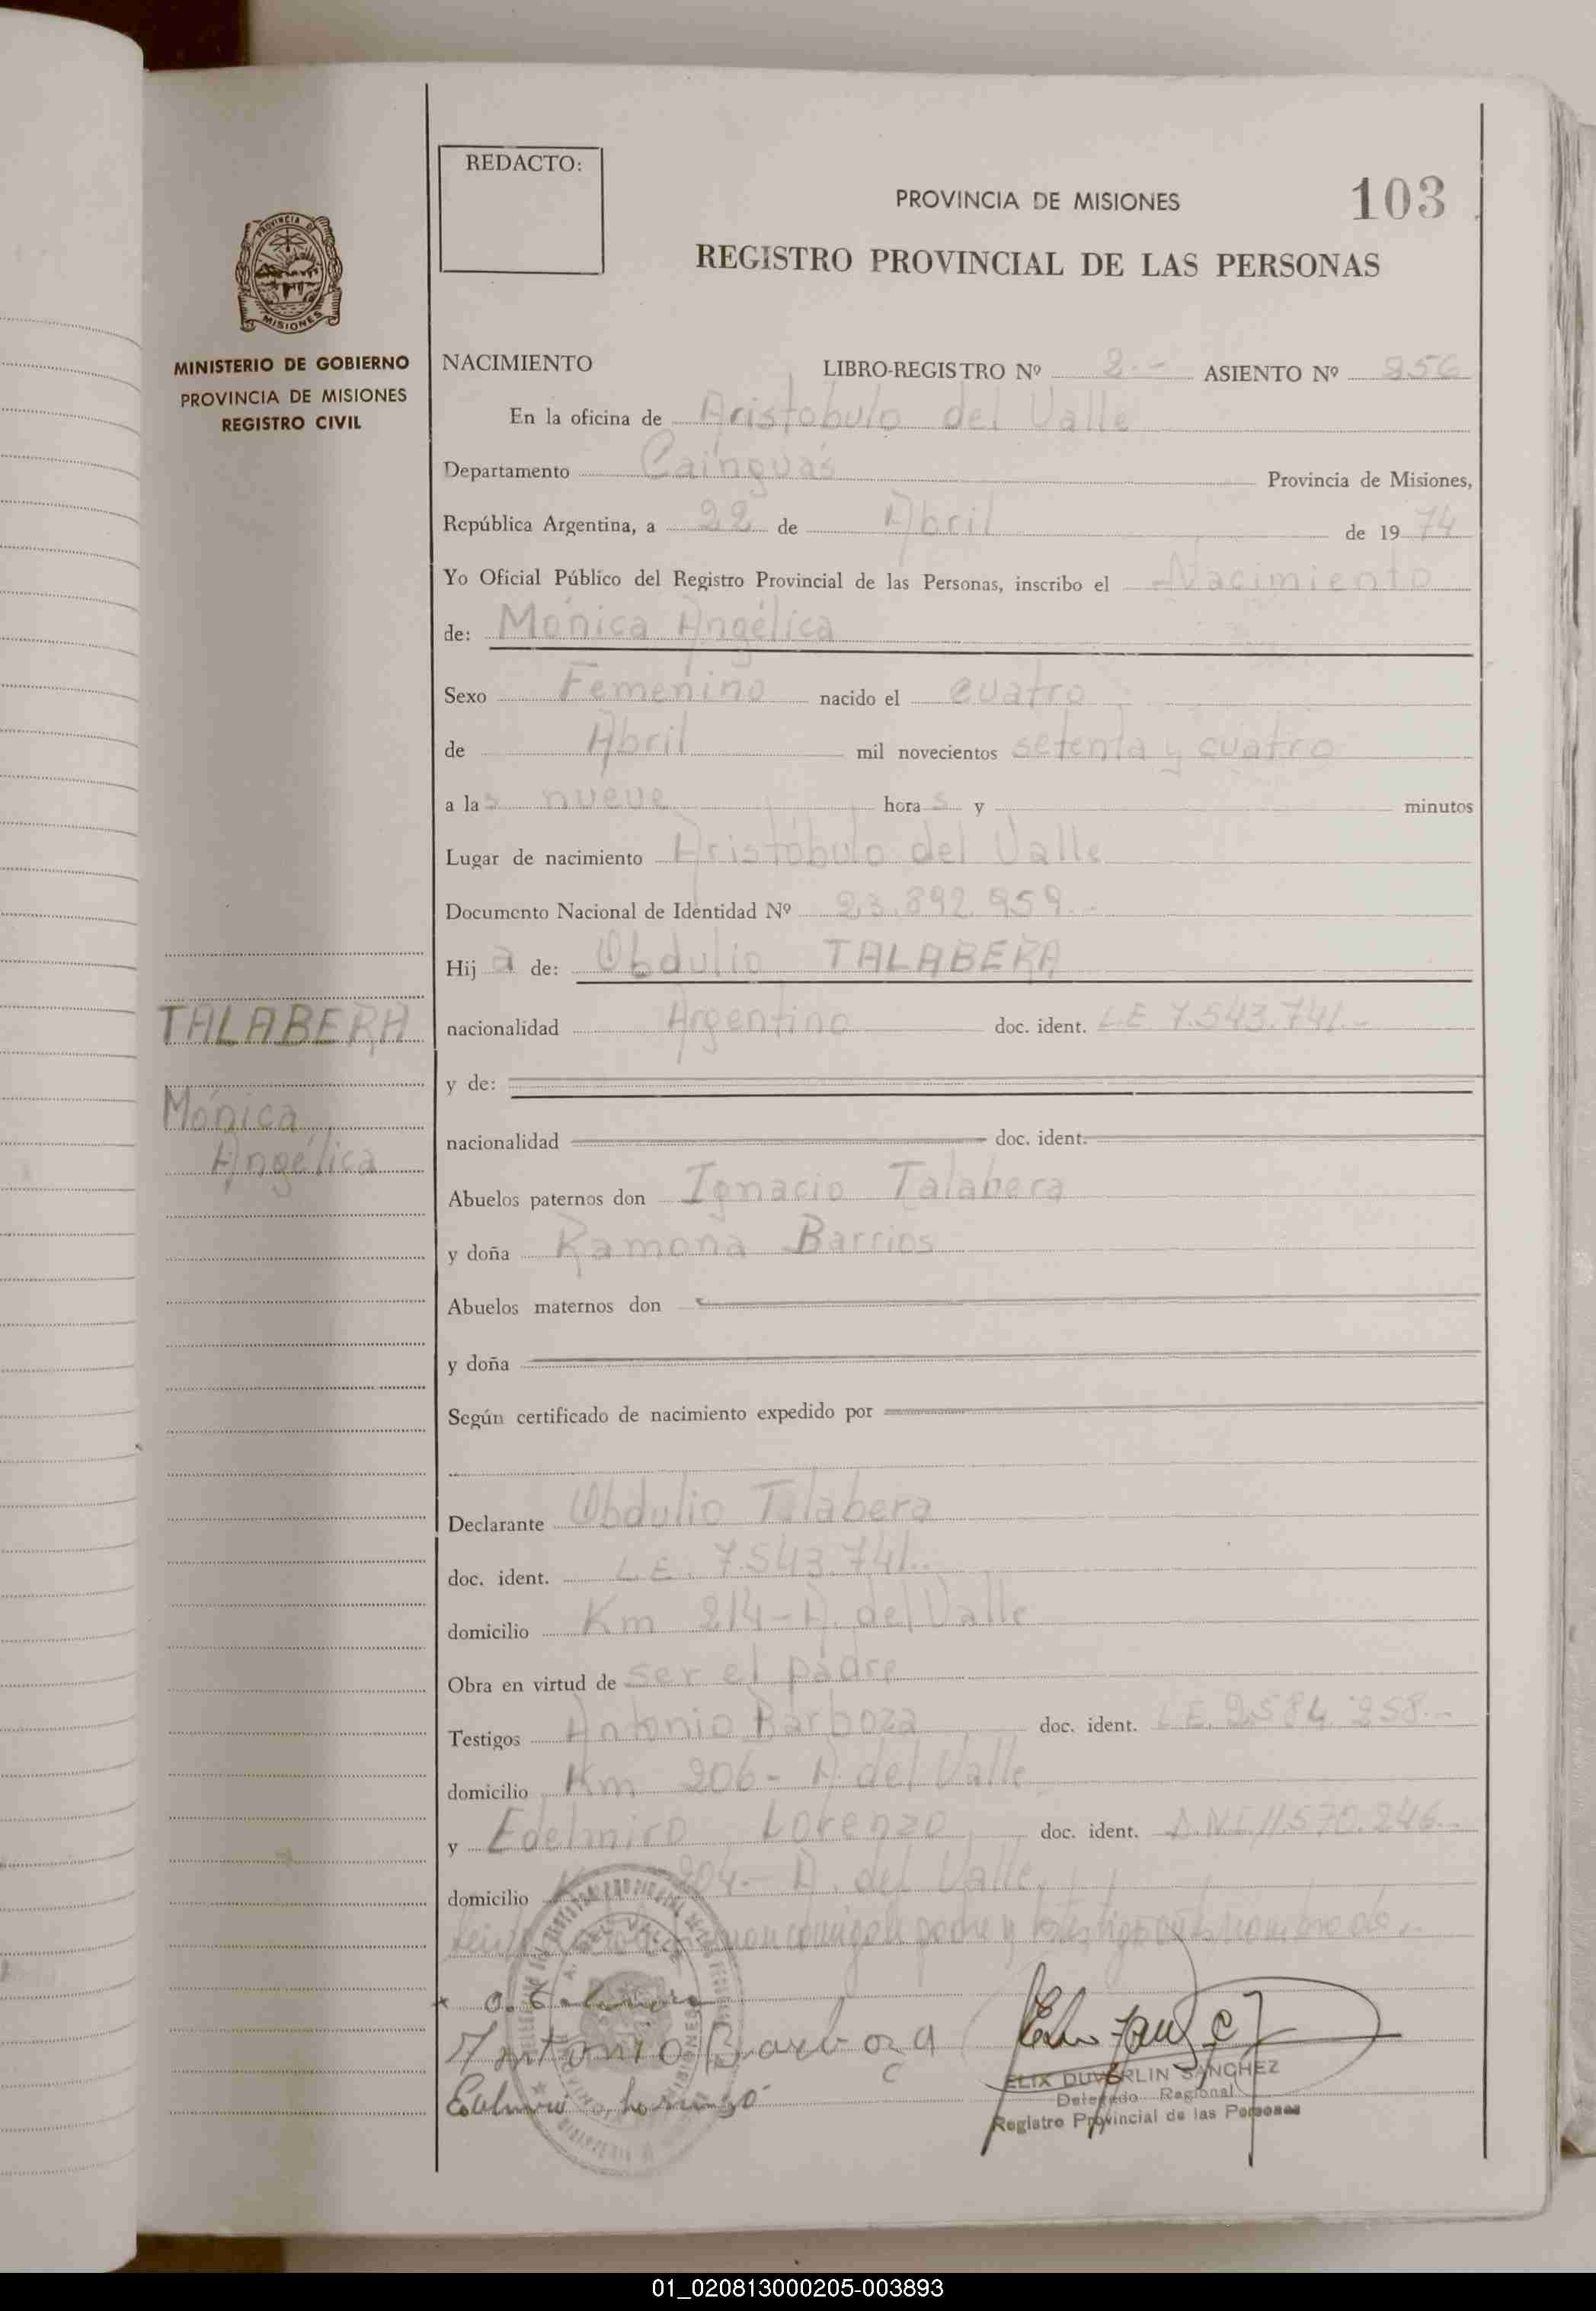 REDACTO:
PROVINCIA DE MISIONES
103
REGISTRO PROVINCIAL DE LAS PERSONAS
PROVINCIA DE
MISIONES
MINISTERIO DE GOBIERNO
PROVINCIA DE MISIONES
REGISTRO CIVIL
NACIMIENTO LIBRO-REGISTRO Nº 2.- ASIENTO Nº 256
En la oficina de Aristóbulo del Valle
Departamento Cainguás Provincia de Misiones,
República Argentina, a 22 de Abril de 1974
Yo Oficial Público del Registro Provincial de las Personas, inscribo el Nacimiento
de: Mónica Angélica
Sexo Femenino nacido el cuatro
de Abril mil novecientos setenta y cuatro
a las nueve horas y minutos
Lugar de nacimiento Aristóbulo del Valle
Documento Nacional de Identidad Nº 23.892.959.-
Hija de: Obdulio TALABERA
TALABERA
nacionalidad Argentino doc. ident. L.E 7.543.741.-
y de:
Mónica
Angélica
nacionalidad doc. ident.
Abuelos paternos don Ignacio Talabera
y doña Ramona Barrios
Abuelos maternos don
y doña
Según certificado de nacimiento expedido por
Declarante Obdulio Talabera
doc. ident. L.E. 7.543.741..
domicilio Km 214-A. del Valle
Obra en virtud de ser el padre
Testigos Antonio Barboza doc. ident. L.E. 2.584.258.-
domicilio Km 206- A. del Valle
y Edelmiro Lorenzo doc. ident. D.N.I. 11.570.246.-
domicilio 204.- A. del Valle.
conmigo el padre y testigos
Antonio Barboza
ELIX DUVERLIN SANCHEZ
Delegado Regional
Registro Provincial de las Personas
01_020813000205-003893